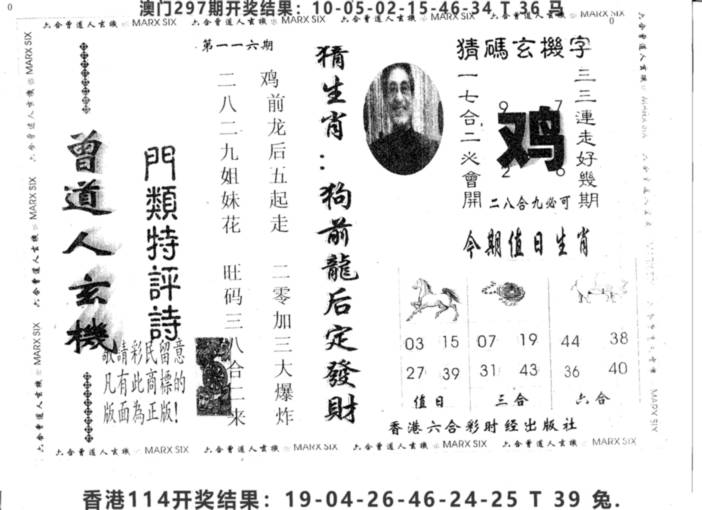 澳门297期开奖结果：10-05-02-15-46-34 T 36 马
六合曾道人玄機 MARX SIX 六合曾道人玄機 MARX SIX 六合曾道人玄機 MARX SIX 六合曾道人玄機 MARX SIX
猜碼玄機字
三三連走好幾期
9 7
鸡
2 6
一七合二必會開
二八合九必可
今期值日生肖
03 15 07 19 44 38
27 39 31 43 36 40
值日 三合 六合
香港六合彩时经出版社
猜生肖：狗前龍后定發財
第一一六期
鸡前龙后五起走 二零加三大爆炸
二八二九姐妹花 旺码三八合二来
門類特評詩
敬請彩民留意
凡有此商標的
版面為正版！
曾道人玄機
六合曾道人玄機 MARX SIX 六合曾道人玄機 MARX SIX 六合曾道人玄機 MARX SIX 六合曾道人玄機 MARX SIX
香港114开奖结果：19-04-26-46-24-25 T 39 兔.